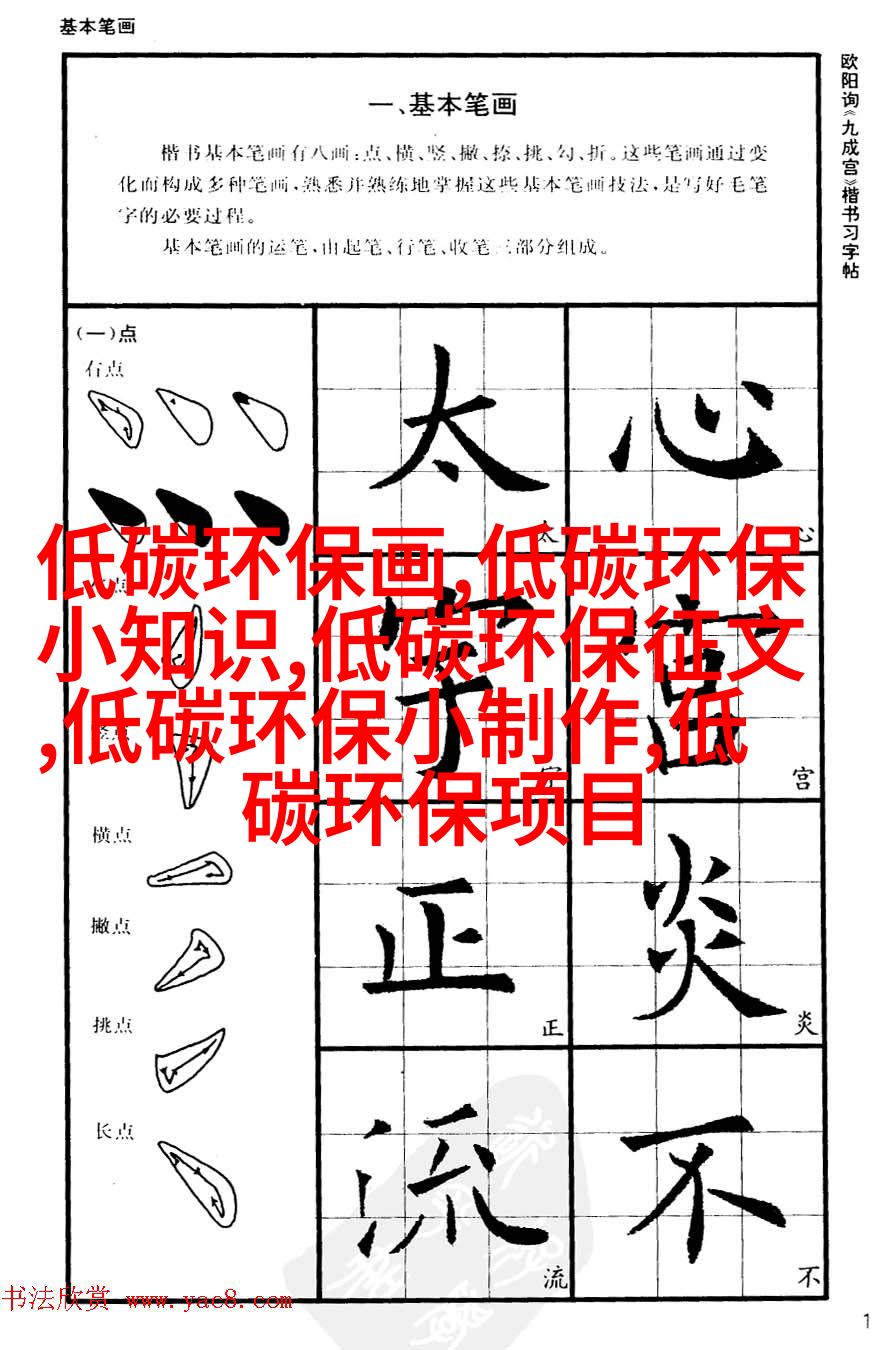 基本笔画
欧阳询《九成宫》楷书习字帖
一、基本笔画
楷书基本笔画有八画:点、横、竖、撇、捺、挑、勾、折。这些笔画通过变
化而构成多种笔画,熟悉并熟练地掌握这些基本笔画技法,是写好毛笔
字的必要过程。
基本笔画的运笔,由起笔、行笔、收笔三部分组成。
(一)点
右点
太 心
太 心
低碳环保画,低碳环保
小知识,低碳环保征文
,低碳环保小制作,低
碳环保项目
字 宫
宫
横点
撇点
挑点
长点
正 炎
正 炎
流 不
流 不
书法欣赏 www.yac8.com
1